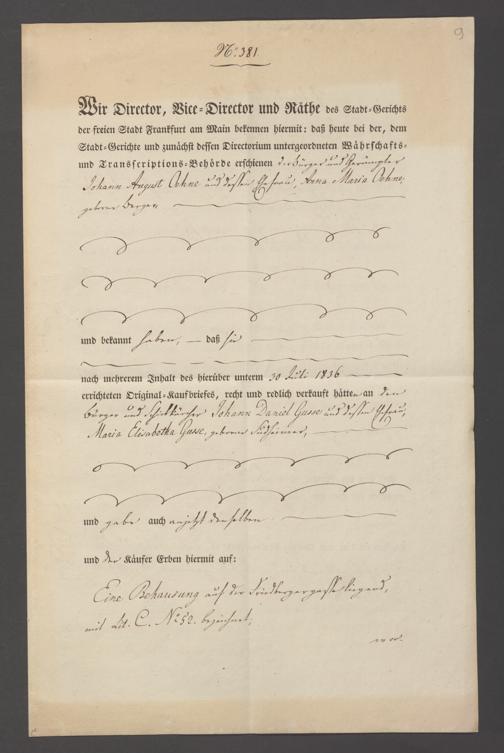 9
No. 381.
Wir Director, Vice-Director und Räthe des Stadt-Gerichts
der freien Stadt Frankfurt am Main bekennen hiermit: daß heute bei der, dem
Stadt-Gerichte und zunächst dessen Directorium untergeordneten Währschafts-
und Transcriptions-Behörde erschienen der Bürger und
Johann August Oehne und dessen Ehefrau, Anna Maria Oehne,
geborne
und bekannt haben, — daß sie
nach mehrerem Inhalt des hierüber unterm 30 Juli 1836
errichteten Original-Kaufbriefes, recht und redlich verkauft hätten an den
Bürger und Johann Daniel Gusse und dessen Ehefrau,
Maria Elisabetha Gusse, geborne
und gabe auch anjetzt denselben
und der Käufer Erben hiermit auf:
Eine Behausung auf der Friedbergergasse liegend,
mit Lit. C. No. 52. bezeichnet,